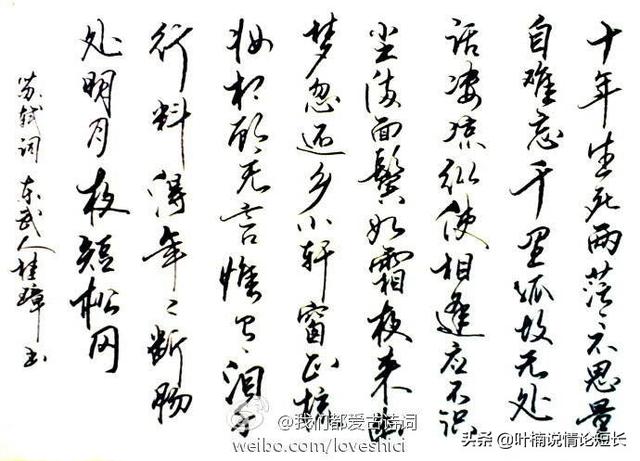 十年生死两茫々不思量
自难忘千里孤坟无处
话凄凉纵使相逢应不识
尘满面鬓如霜夜来幽
梦忽还乡小轩窗正梳
妆相顾无言惟有泪千
行料得年々断肠
处明月夜短松冈
苏轼词 东武人桂璋书
@我们都爱古诗词
weibo.com/loveshici
头条 @叶楠说情论短长